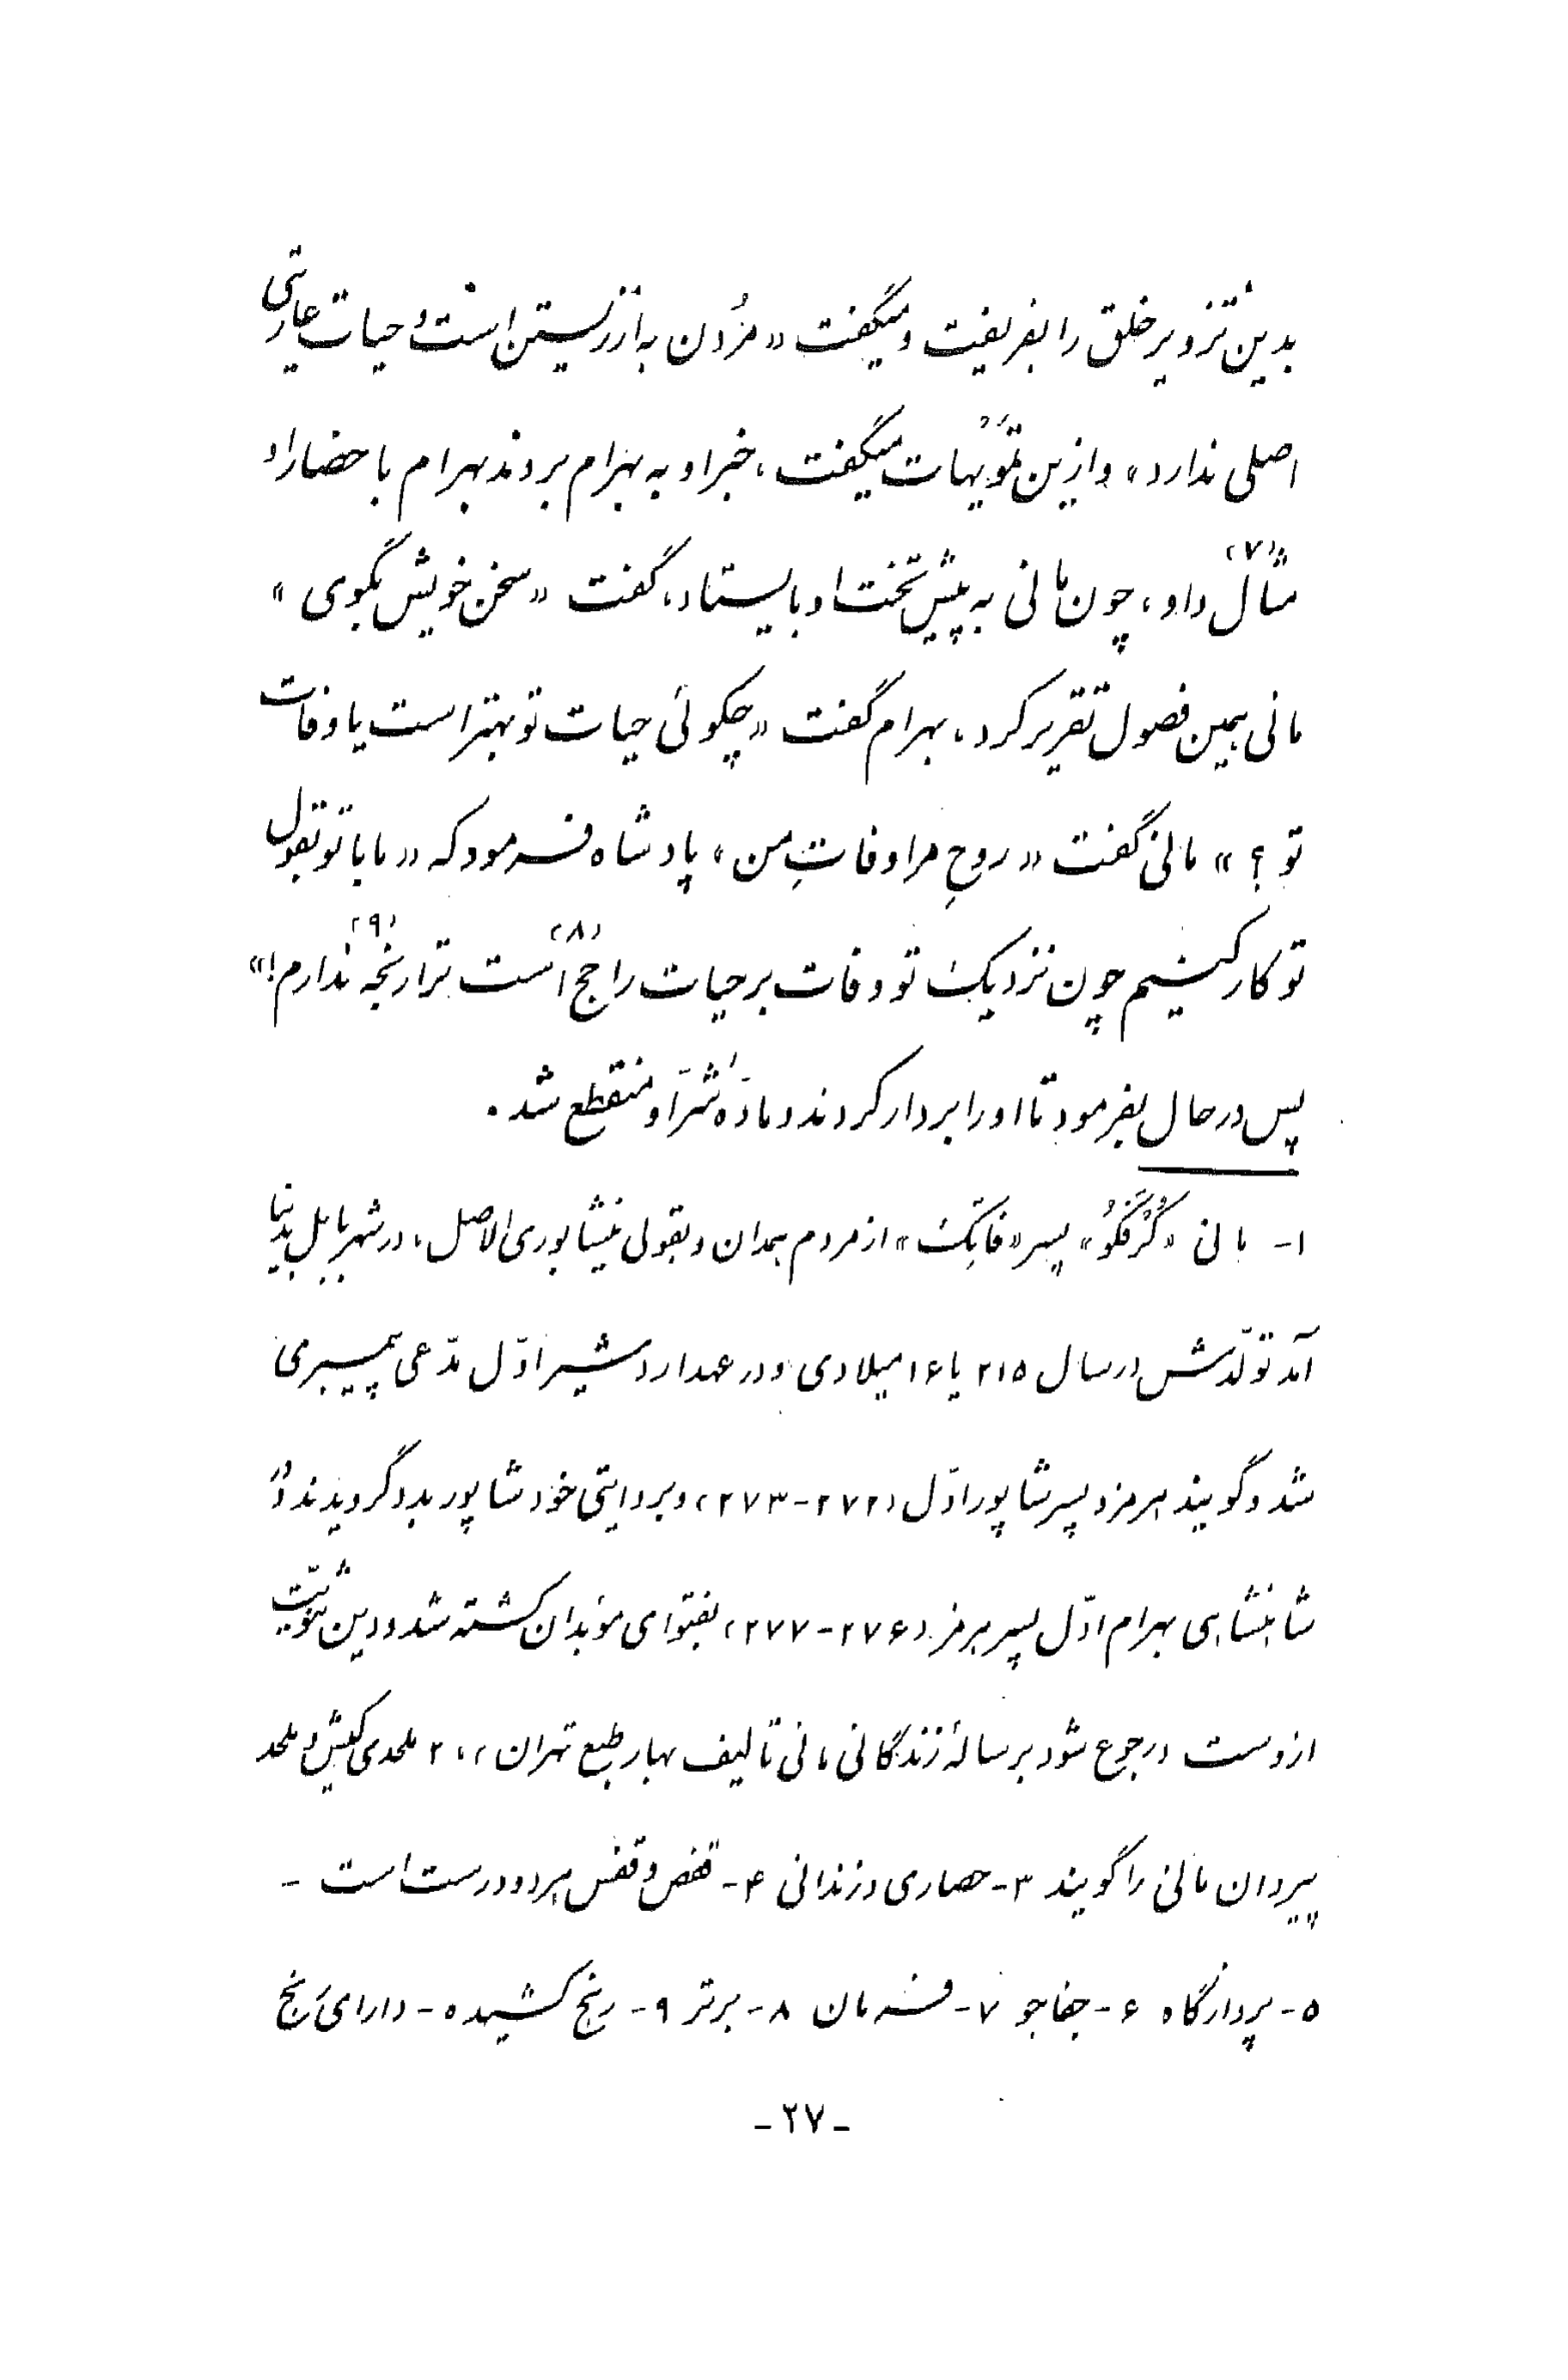 بدین تزویر خلق را بفریفت و میگفت «مُردن به از زیستن است و حیات عاریتی
اصلی ندارد» و ازین تَمْویهات میگفت، خبر او به بهرام بردند بهرام باحضار او
مثال (۷) داد، چون مانی به پیش تخت او بایستاد، گفت «سخن خویش بگوی»
مانی همین فصول تقریر کرد، بهرام گفت «چگوئی حیات تو بهتر است یا وفات
تو؟» مانی گفت «روحِ مرا وفاتِ من» پادشاه فرمود که «ما با تو بقول
تو کار کنیم چون نزدیک تو وفات بر حیات راجح (۸) است ترا رنجه (۹) ندارم!»
پس در حال بفرمود تا او را بردار کردند و مادّه شرّ او منقطع شد.
۱- مانی «گُرفگُو» پسر «فاتِک» از مردم همدان و بقولی نیشابوری الاصل، در شهر بابل بدنیا
آمد تولّدش در سال ۲۱۵ یا ۱۶ میلادی و در عهد اردشیر اوّل مدّعی پیمبری
شد و گویند هرمزد پسر شاپور اوّل (۲۷۲-۲۷۳) و بروایتی خود شاپور بدو گرویدند و در
شاهنشاهی بهرام اوّل پسر هرمز (۲۷۶-۲۷۷) بفتوای موبدان کشته شد و دین ثنویّت
ازوست (رجوع شود برسالهٔ زندگانی مانی تألیف بهار طبع تهران) ۲، ملحدی کیش و ملحد
پیروان مانی را گویند ۳- حصاری و زندانی ۴- قفص و قفس هر دو درست است -
۵- پروازگاه ۶- جفاجو ۷- فرمان ۸- برتر ۹- رنج کشیده - دارای رنج
- ۲۷ -